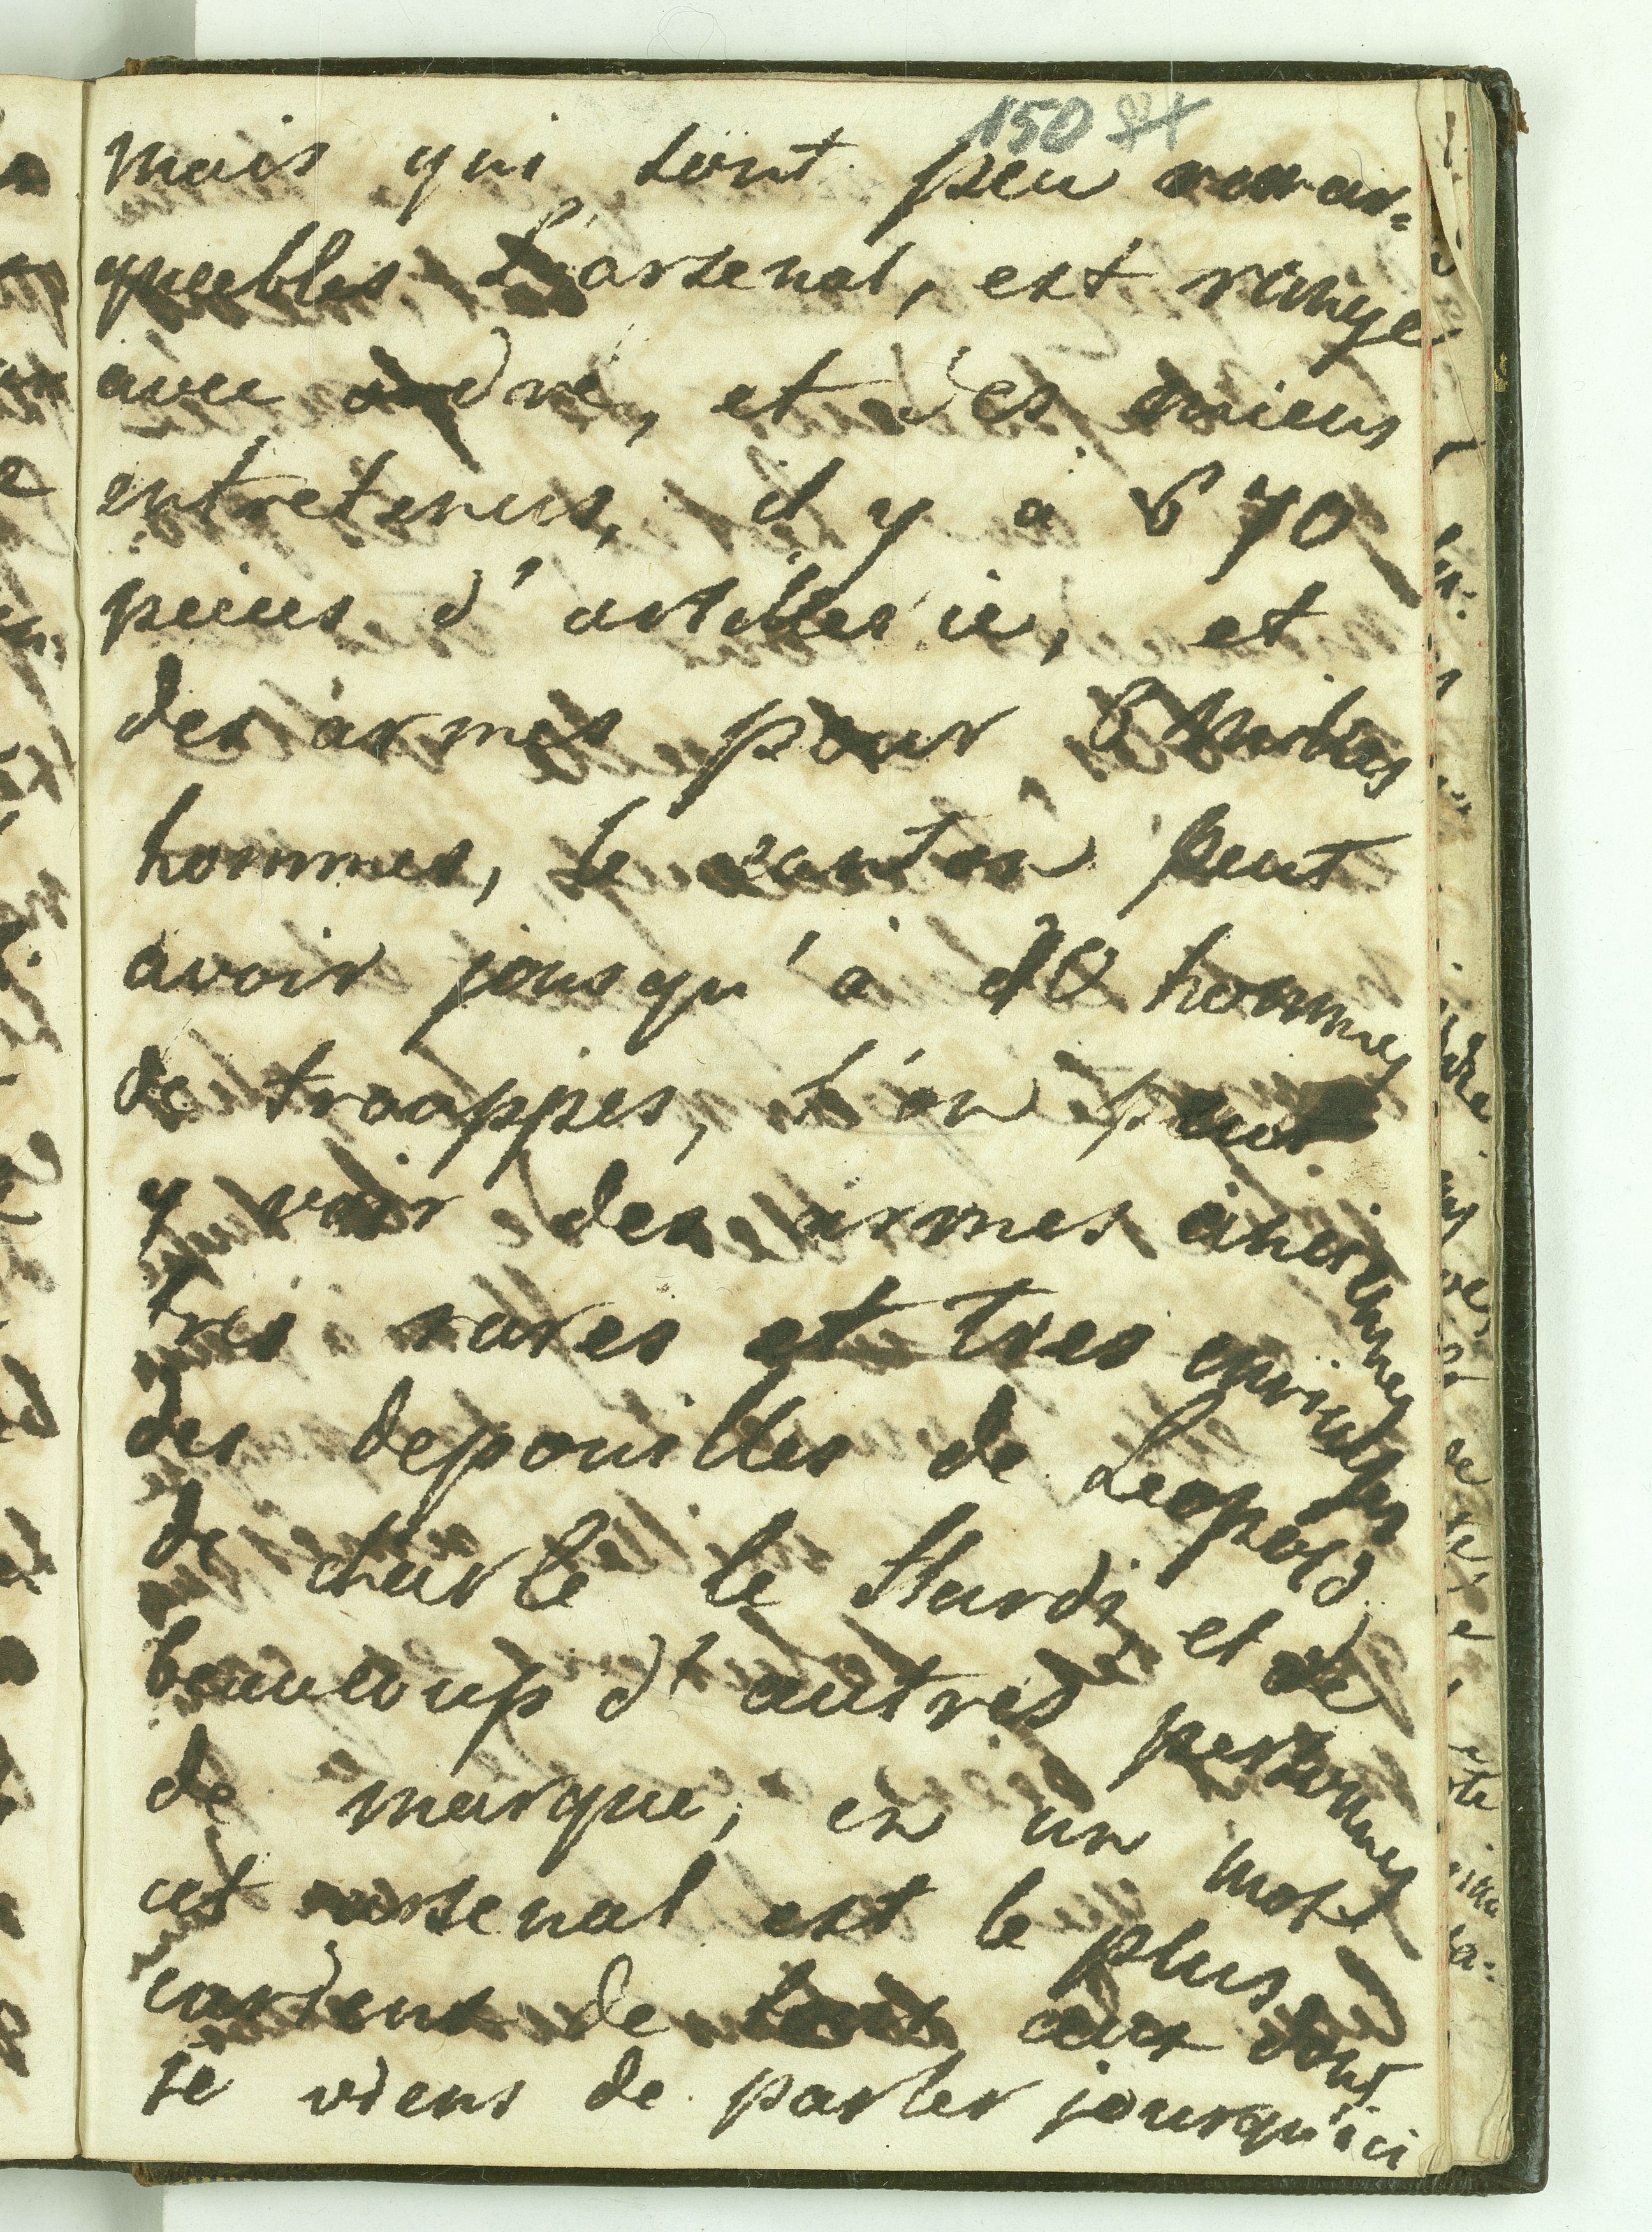 150
mais qui sont peu remar=
queebles L'arsenal, est rangé
avec ordre, et des mieux
entretenus, il y à 670
pieces d'artillerie, et
des armes pour 6 milles
hommes, le canton peut
avoir jousqu'à 10 hommes
de trouppes, l'on peut
y voir des armes anciennes
tres rares et tres curieuses
des depouilles de Leopold
de charle le Hardi, et de
beaucoup d'autres personnes
de marque, en un mot
cet arsenal est le plus
de tous ceux dont
je viens de parler jousqu'ici